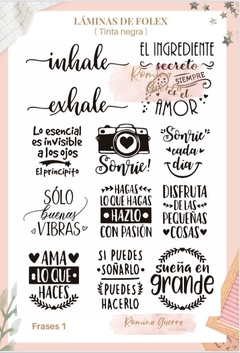 LÁMINAS DE FOLEX
( Tinta negra )
inhale
exhale
EL INGREDIENTE
secreto
SIEMPRE
es el
AMOR
Romina Guerra
Lo esencial
es invisible
a los ojos
El principito
Sonríe!
Sonríe
cada
día
SÓLO
buenas
VIBRAS
HAGAS
LO QUE HAGAS
HAZLO
CON PASIÓN
DISFRUTA
DE LAS
PEQUEÑAS
COSAS
AMA
LO QUE
HACES
SI PUEDES
SOÑARLO
PUEDES
HACERLO
sueña en
grande
Frases 1
Romina Guerra